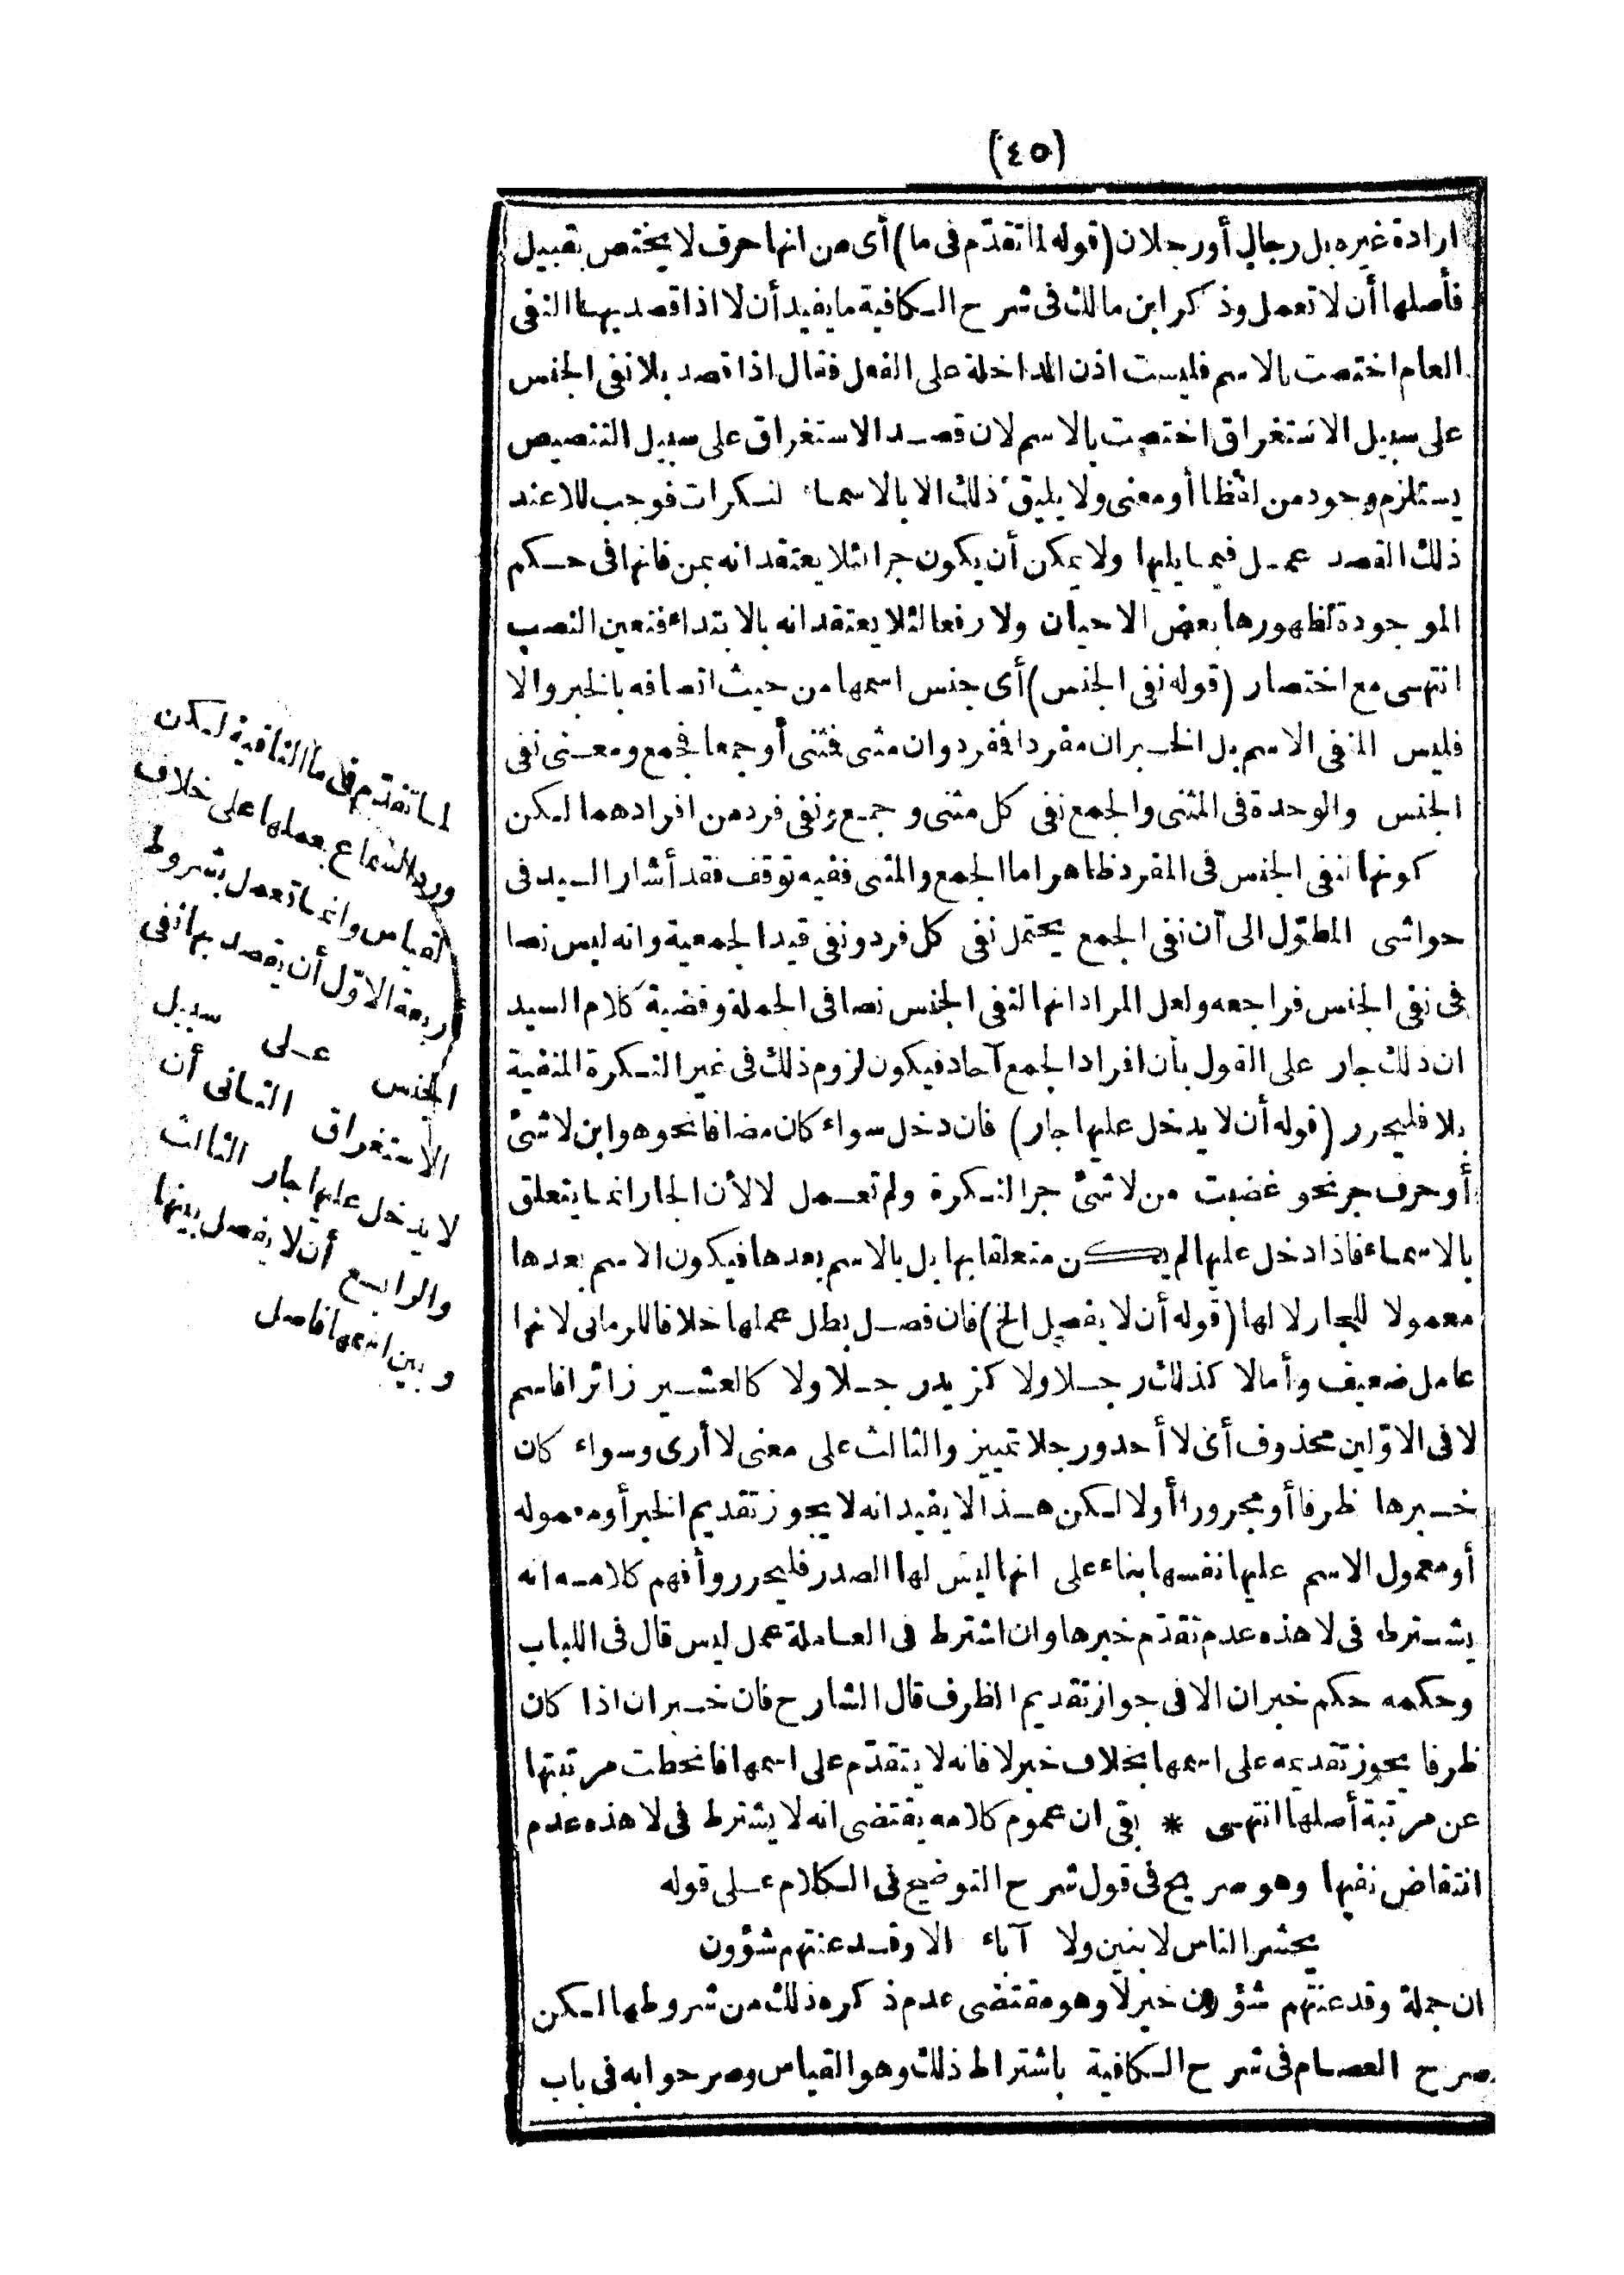 (٤٥)
ارادة غيره بل رجال أو رجلان (قوله لما تقدّم فى ما) أى من انها حرف لا يختص بقبيل
فأصلها أن لا تعمل وذكر ابن مالك فى شرح الكافية ما يفيد أن لا اذا قصد بها النفى
العام اختصت بالاسم فليست اذن الداخلة على الفعل فقال اذا قصد بلا نفى الجنس
على سبيل الاستغراق اختصت بالاسم لان قصد الاستغراق على سبيل التنصيص
يستلزم وجود من لفظا أو معنى ولا يليق ذلك الا بالاسماء لنكرات فوجب للا عند
ذلك القصد عمل فيما يليها ولا يمكن أن يكون جرا لئلا يعتقد انه بمن فانها فى حكم
الموجودة لظهورها بعض الاحيان ولا رفعا لئلا يعتقد انه بالابتداء فتعين النصب
انتهى مع اختصار (قوله نفى الجنس) أى جنس اسمها من حيث اتصافه بالخبر والا
فليس المنفى الاسم بل الخبر ان مفردا ففرد وان مثنى فمثنى أو جمعا فجمع ومعنى نفى
الجنس والوحدة فى المثنى والجمع نفى كل مثنى وجمع ونفى فرد من افرادهما لكن
كونها لنفى الجنس فى المفرد ظاهر اما الجمع والمثنى ففيه توقف فقد أشار السيد فى
حواشى المطوّل الى أن نفى الجمع يحتمل نفى كل فرد ونفى قيد الجمعية وانه ليس نصا
فى نفى الجنس فراجعه ولعل المراد انها لنفى الجنس نصا فى الجملة وقضية كلام السيد
ان ذلك جار على القول بأن افراد الجمع آحاد فيكون لزوم ذلك فى غير النكرة المنفية
بلا فليحرر (قوله أن لا يدخل عليها جار) فان دخل سواء كان مضافا نحو هو ابن لا شئ
أو حرف جر نحو غضبت من لا شئ جر النكرة ولم تعمل لا لأن الجار انما يتعلق
بالاسماء فاذا دخل عليها لم يكن متعلقا بها بل بالاسم بعدها فيكون الاسم بعدها
معمولا للجار لا لها (قوله أن لا يفصل الخ) فان فصل بطل عملها خلافا للرمانى لانها
عامل ضعيف وأما لا كذلك رجلا ولا كزيد رجلا ولا كالعشير زائرا فاسم
لا فى الاوّلين محذوف أى لا أحد ورجلا تمييز والثالث على معنى لا أرى وسواء كان
خبرها ظرفا أو مجرورا أو لا لكن هذا لا يفيد انه لا يجوز تقديم الخبر أو معموله
أو معمول الاسم عليها نفسها بناء على انها ليس لها الصدر فليحرر وأفهم كلامه انه
يشترط فى لا هذه عدم تقدّم خبرها وان اشترط فى العاملة عمل ليس قال فى اللباب
وحكمه حكم خبر ان الا فى جواز تقديم الظرف قال الشارح فان خبر ان اذا كان
ظرفا يجوز تقديمه على اسمها بخلاف خبر لا فانه لا يتقدّم على اسمها فانحطت مرتبتها
عن مرتبة أصلها انتهى * بقى ان عموم كلامه يقتضى انه لا يشترط فى لا هذه عدم
انتقاض نفيها وهو صريح فى قول شرح التوضيح فى الكلام على قوله
يحشر الناس لا بنين ولا آباء الا وقد عنتهم شؤون
ان جملة وقد عنتهم شؤون خبر لا وهو مقتضى عدم ذكره ذلك من شروطها لكن
صرح العصام فى شرح الكافية باشتراط ذلك وهو القياس وصرحوا به فى باب
لما تقدّم فى ما النافية لكن
ورد السماع بعملها على خلاف
القياس وانما تعمل بشروط
أربعة الاوّل أن يقصد بها نفى
الجنس على سبيل
الاستغراق الثانى أن
لا يدخل عليها جار الثالث
والرابع أن لا يفصل بينها
وبين اسمها فاصل